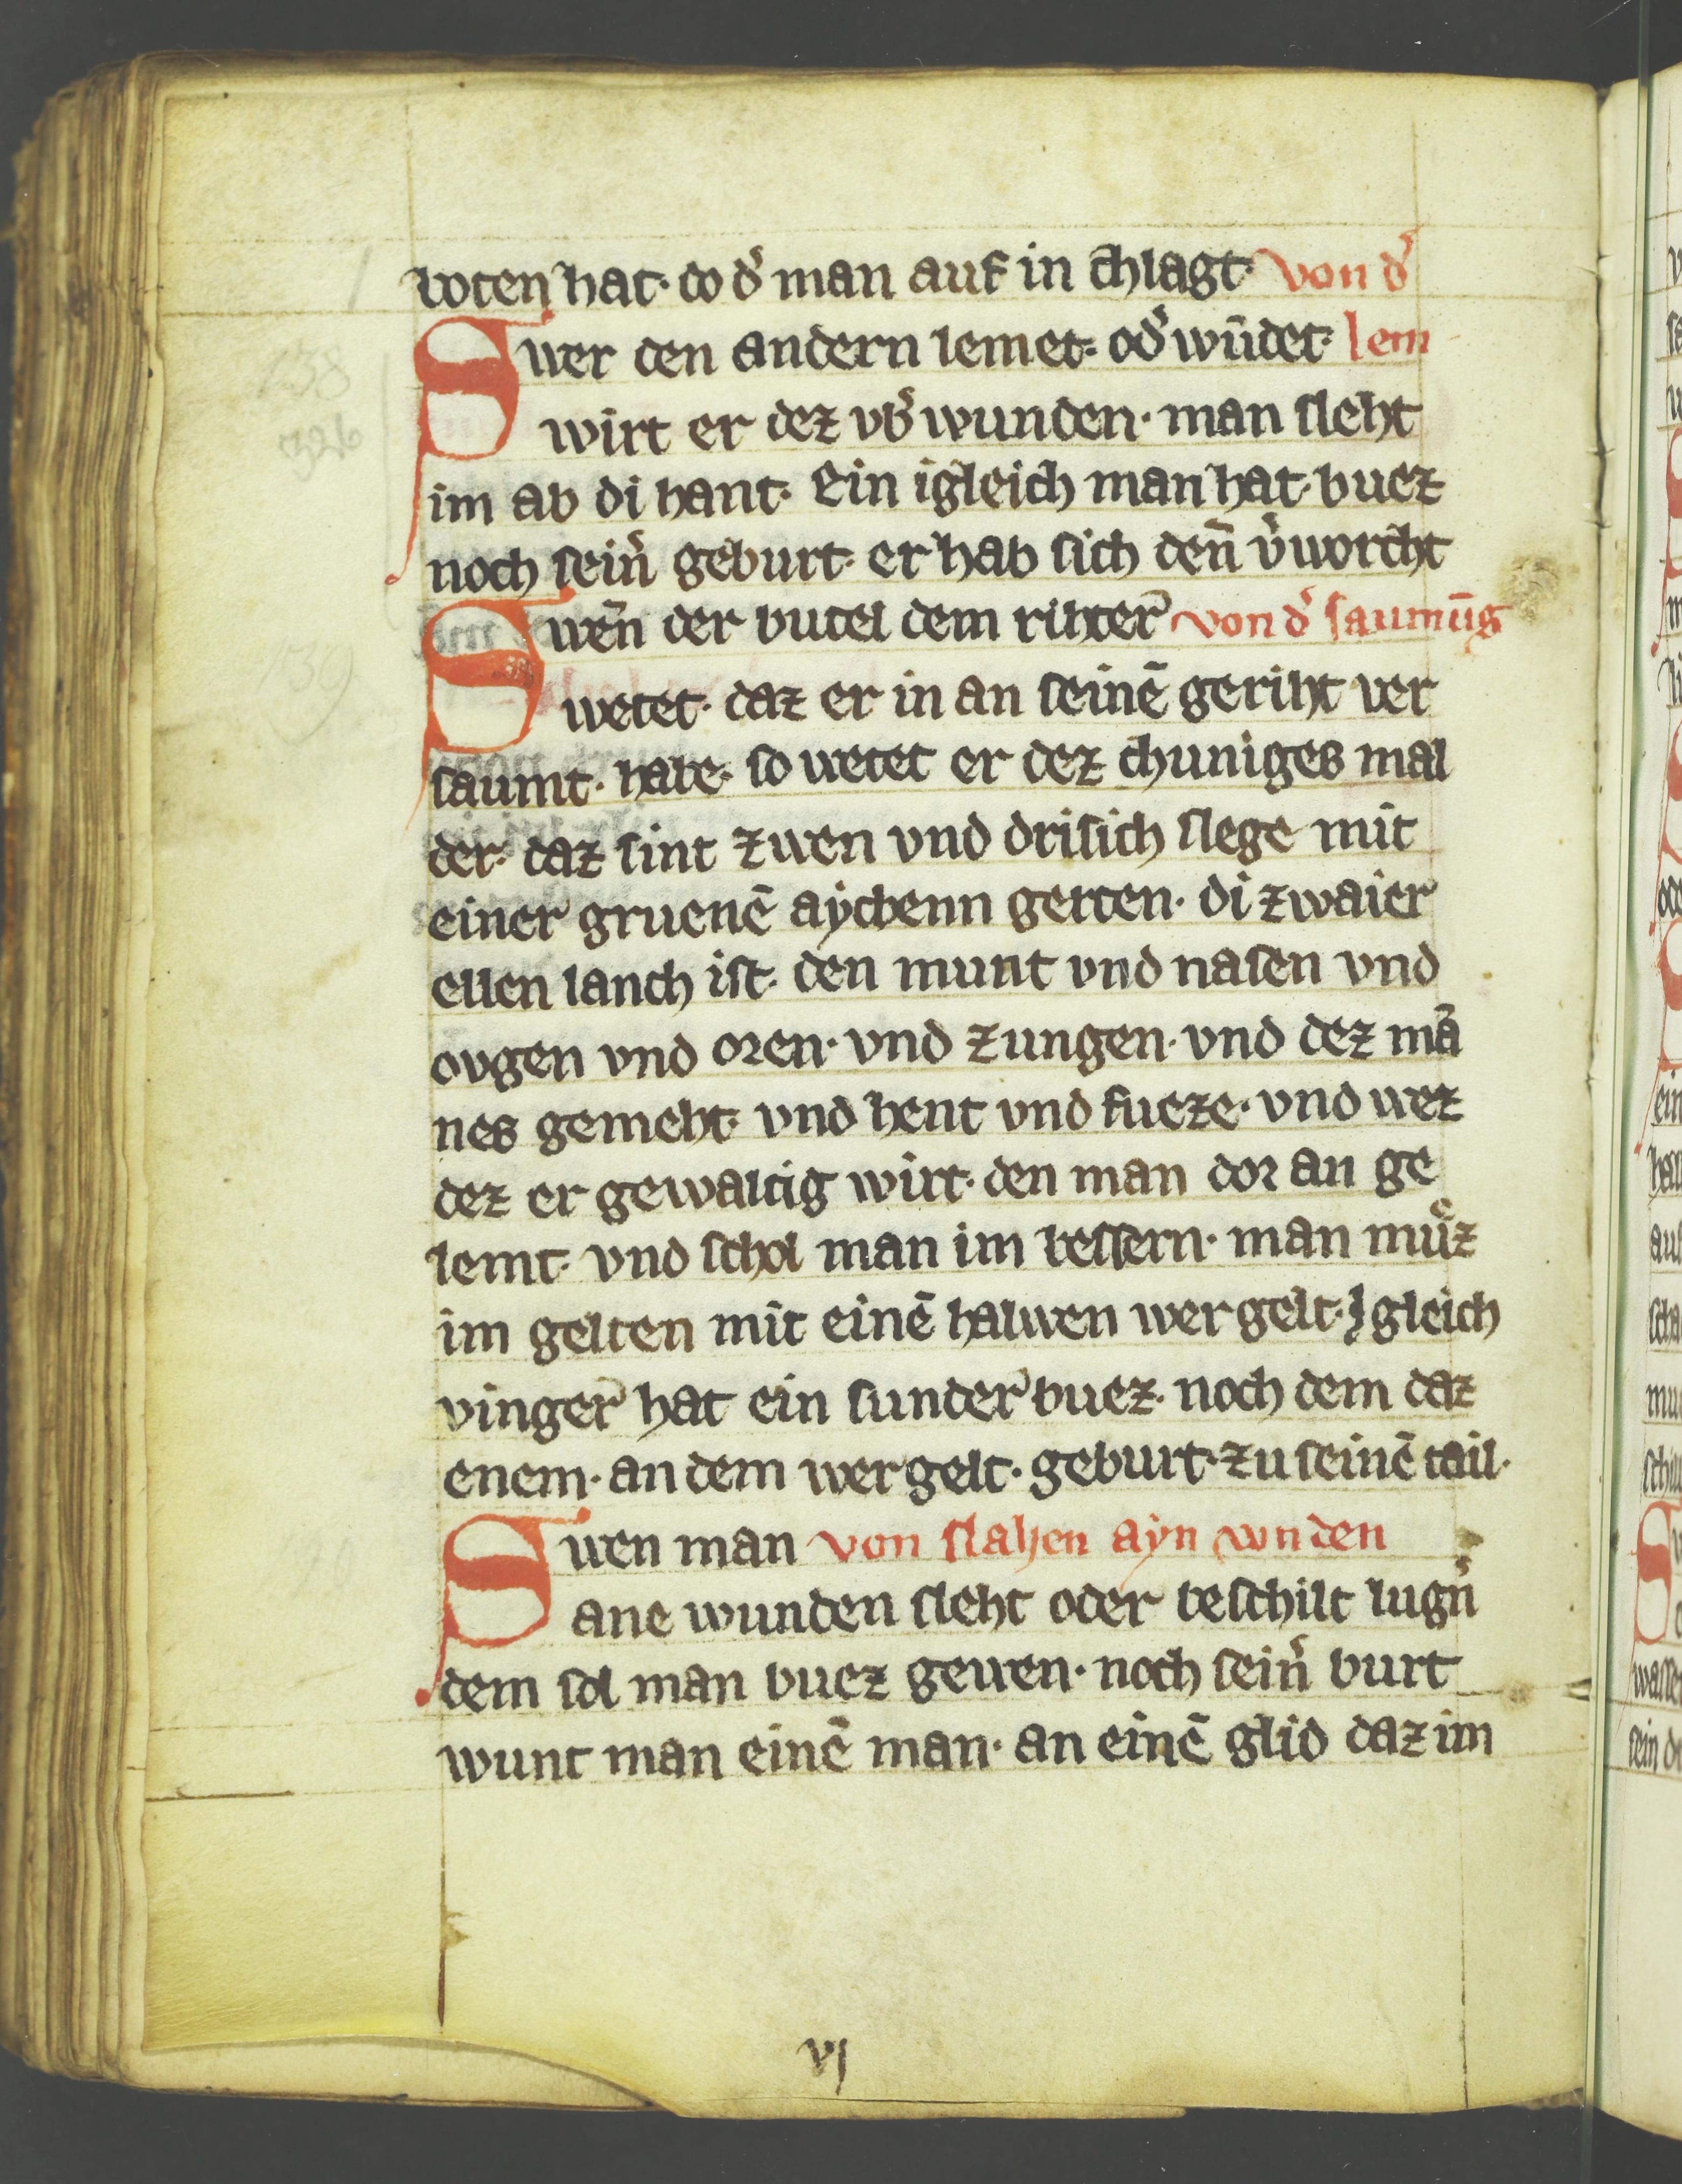 boten hat· do dˀ man auf in chlagt· von dˀ
Swer den andern lemet· odˀ wūdet· lem
wirt er dez vbˀwunden· man sleht
im ab di hant· Ein igleich man hat buez
noch seinˀ geburt· er hab sich den̄ vˀworcht
Swēn der butel dem rihterˀ von dˀ saumūg
wetet· daz er in an seinē geriht ver
saumt· habe· so wetet er dez chuniges mal
der· daz sint zwen vnd drisich slege mit
einer gruenē aychenn gerten· di zwaier
ellen lanch ist· den munt vnd nasen vnd
ovgen vnd oren· vnd zungen· vnd dez mā
nes gemeht· vnd hent vnd fueze· vnd wez
dez er gewaltig wirt· den man dor an ge
lemt· vnd schol man im bessern· man muͤz
im gelten mit einē halwen wergelt· Igleich
vingerˀ hat ein sunder buez· noch dem daz
enem· an dem wergelt· geburt· zu seinē tail·
Swen man von slahen ayn wnden
ane wunden sleht oder beschilt lugnˀ
dem sol man buez gewen· noch seinˀ burt
wunt man einē man· an einē glid daz im
vj